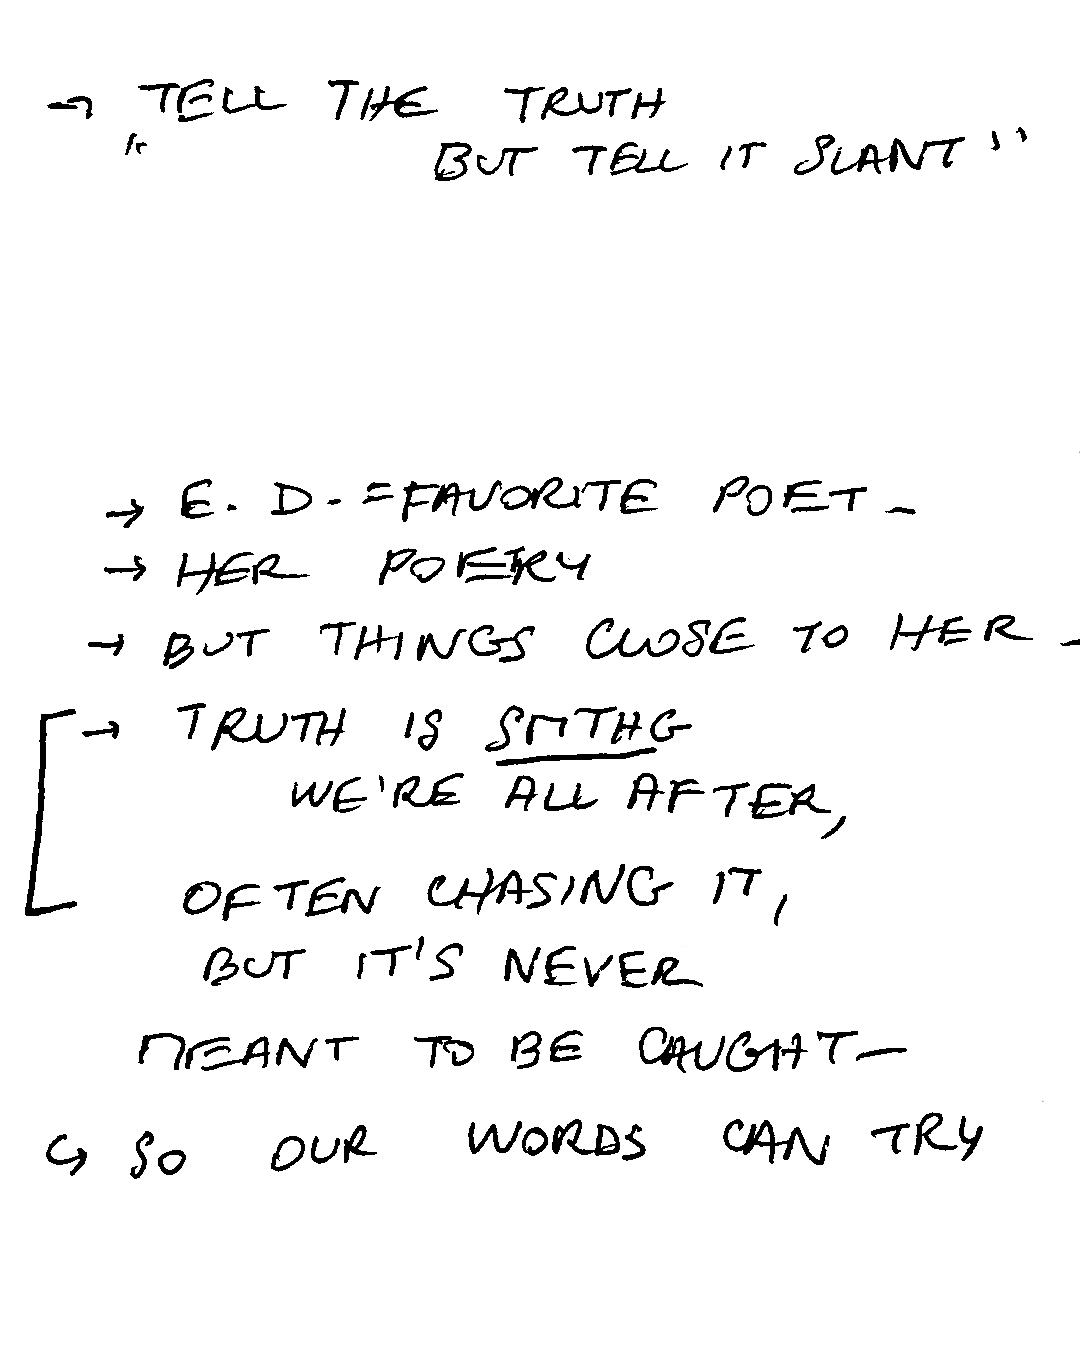 → TELL THE TRUTH
" BUT TELL IT SLANT"
→ E. D. = FAVORITE POET -
→ HER POETRY
→ BUT THINGS CLOSE TO HER -
→ TRUTH IS SMTHG
WE'RE ALL AFTER,
OFTEN CHASING IT,
BUT IT'S NEVER
MEANT TO BE CAUGHT -
↪ SO OUR WORDS CAN TRY